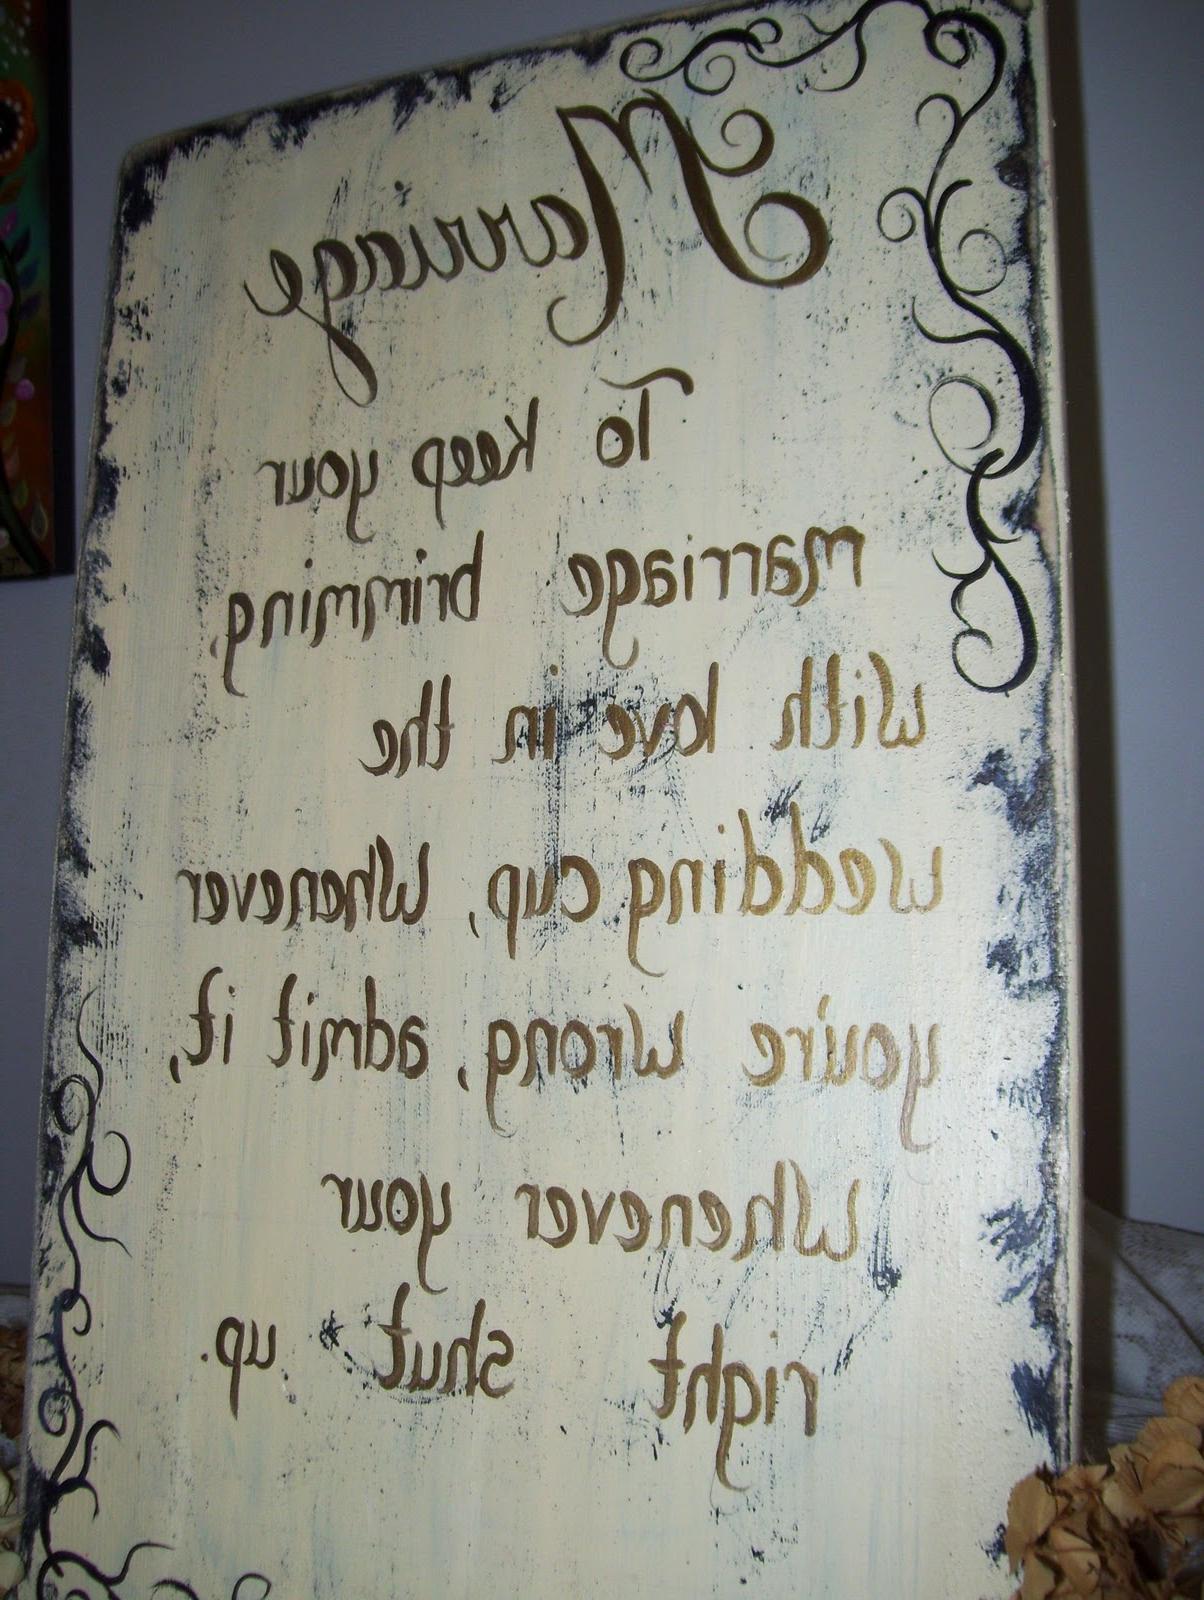 Marriage
To keep your
marriage brimming,
with love in the
wedding cup, whenever
you're wrong, admit it,
whenever your
right shut up.